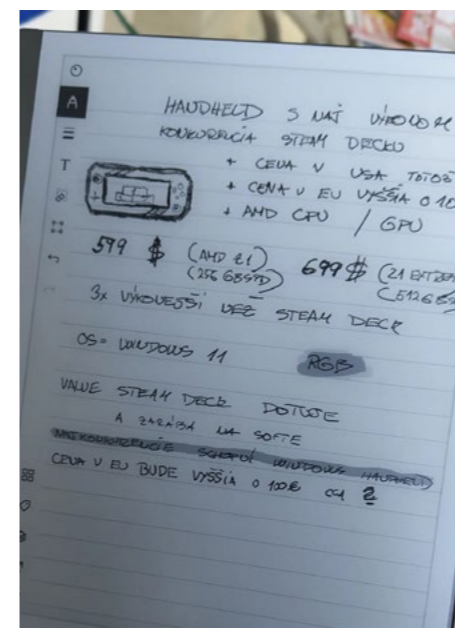 HANDHELD S NAJ VÝKONOM
KONKURENCIA STEAM DECKU
+ CENA V USA TOTOŽ
+ CENA V EU VYŠŠIA O 10
+ AMD CPU / GPU
599 $ (AMD Z1) 699 $ (Z1 EXTREM
(256 GB SSD) (512GB S
3x VÝKONEJŠÍ NEŽ STEAM DECK
OS = WINDOWS 11 RGB
VALVE STEAM DECK DOTUJE
A ZARÁBA NA SOFTE
NAJKONKURENCIE SCHOPNÝ WINDOWS HANDHELD
CENA V EU BUDE VYŠŠIA O 100€ CCA ?
T
A